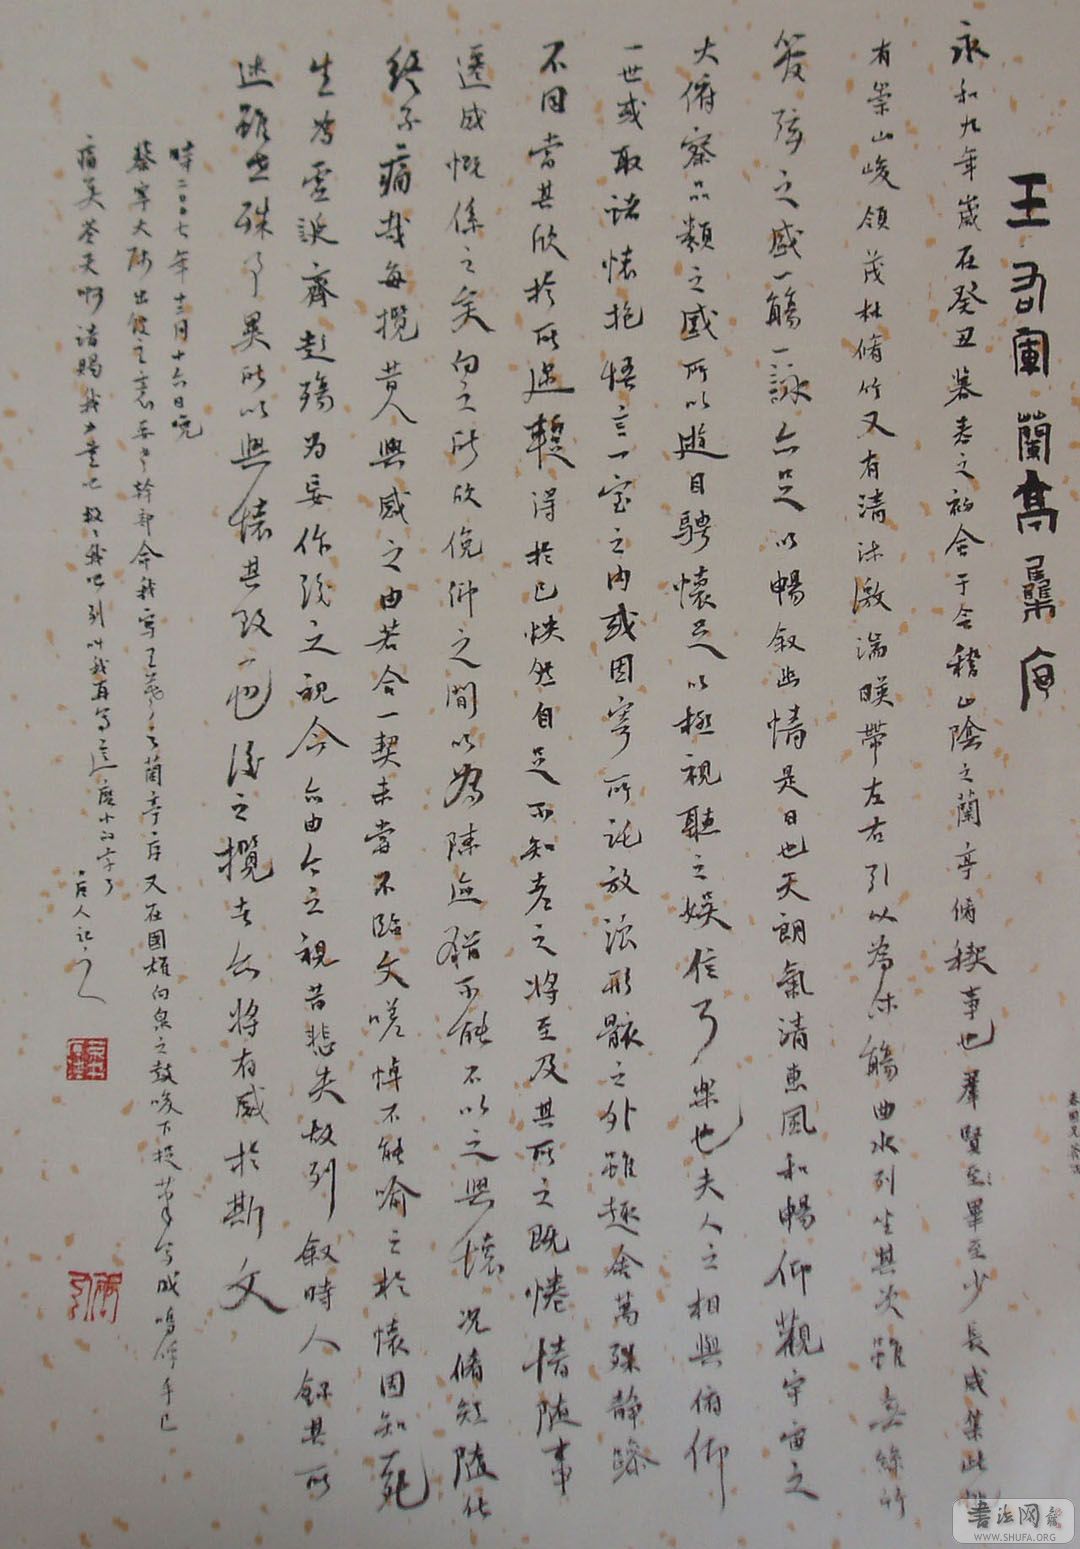 王右軍蘭亭集序
永和九年歲在癸丑暮春之初會于會稽山陰之蘭亭脩稧事也羣賢至畢至少長咸集此地
有崇山峻領茂林脩竹又有清流激湍暎帶左右引以為流觴曲水列坐其次雖無絲竹
管弦之盛一觴一詠亦足以暢敘幽情是日也天朗氣清惠風和暢仰觀宇宙之
大俯察品類之盛所以遊目騁懷足以極視聽之娛信可樂也夫人之相與俯仰
一世或取諸懷抱悟言一室之內或因寄所託放浪形骸之外雖趣舍萬殊靜躁
不同當其欣於所遇暫得於己怏然自足不知老之將至及其所之既惓情隨事
遷感慨係之矣向之所欣俛仰之間以為陳迹猶不能不以之興懷況脩短隨化
終於痛哉每攬昔人興感之由若合一契未嘗不臨文嗟悼不能喻之於懷因知死
生為虛誕齊彭殤為妄作後之視今亦由今之視昔悲夫故列敘時人錄其所
述雖世殊事異所以興懷其致一也後之攬者亦將有感於斯文
時二〇〇七年十二月十六日晚
命我寫王羲之之蘭亭序又在國煩向泉之鼓唆下提筆
天啊請賜我再寫這
后人記
書法网
WWW.SHUFA.ORG